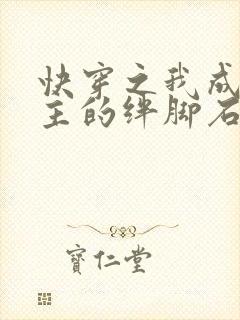 快穿之我成
主的绊脚石
寶仁堂